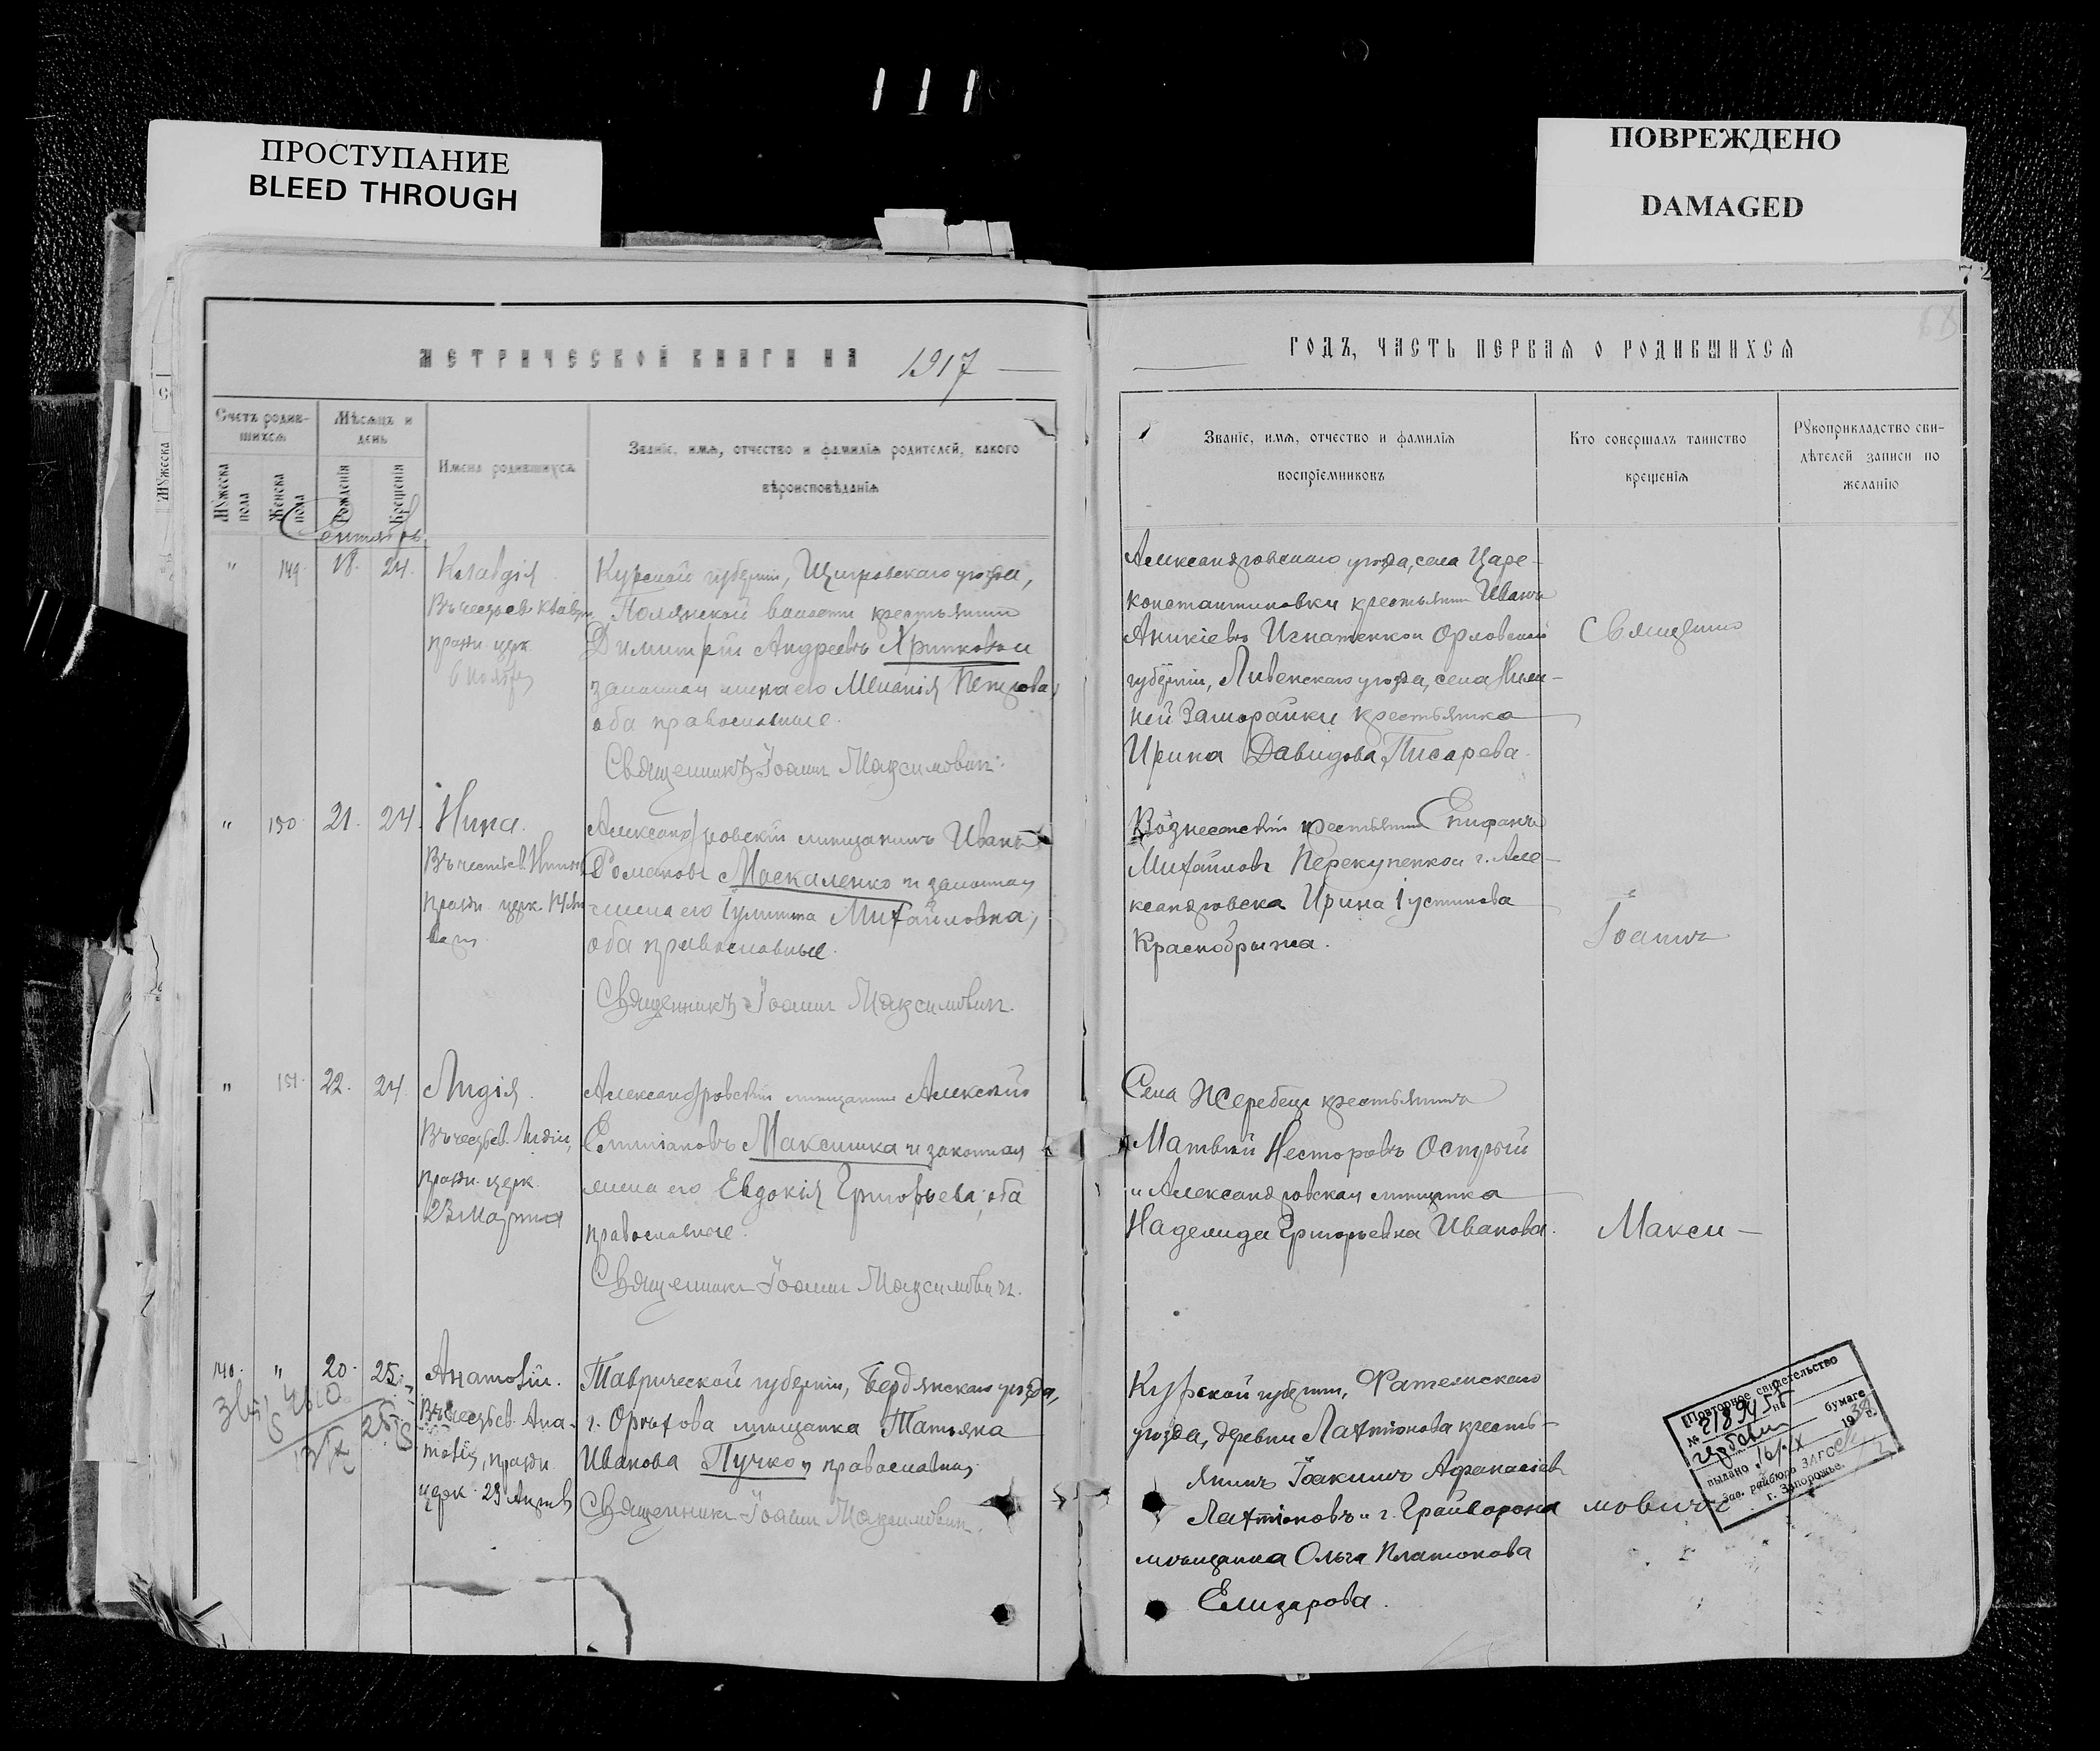 111
ПРОСТУПАНИЕ
BLEED THROUGH
ПОВРЕЖДЕНО
DAMAGED
МЕТРИЧЕСКОЙ КНИГИ НА 1917
Счетъ родив-
шихся
Мужеска пола
Женска пола
Мѣсяцъ и
день
Рожденія
Крещенія
Имена родившихся
Званіе, имя, отчество и фамилія родителей, какого
вѣроисповѣданія
Сентябрь
" 149 18. 24.
Клавдія
Въ честь св. Клавдіи
празд. церк.
6 Ноября
Курской губерніи, Щигровскаго уѣзда,
Полянской волости крестьянинъ
Димитрій Андреевъ Хрипковъ и
законная жена его Меланія Петрова,
оба православные.
Священникъ Іоаннъ Максимовичъ.
" 150 21. 24.
Нина.
Въ честь св. Нины
празд. церк.
Александровскій мѣщанинъ Иванъ
Романовъ Москаленко и законная
жена его Іулитта Михайловна,
оба православные.
Священникъ Іоаннъ Максимовичъ.
" 151. 22. 24.
Лидія.
Въ честь св. Лидіи,
празд. церк.
23 Марта
Александровскій мѣщанинъ Алексѣй
Максишка и законная
жена его Евдокія Григорьева, оба
православные.
Священникъ Іоаннъ Максимовичъ.
140. " 20. 25.
Анатолій.
Въ честь св. Ана-
толія, празд.
церк. 23 Апрѣля
Таврической губерніи, Бердянскаго уѣзда,
г. Орѣхова мѣщанка Татьяна
Иванова Пучко, православная
Священникъ Іоаннъ Максимовичъ.
ГОДЪ, ЧАСТЬ ПЕРВАЯ О РОДИВШИХСЯ
Званіе, имя, отчество и фамилія
воспріемниковъ
Кто совершалъ таинство
крещенія
Рукоприкладство сви-
дѣтелей записи по
желанію
Александровскаго уѣзда, села Царе-
константиновки крестьянинъ Иванъ
Аникіевъ Игнатенко и Орловской
губерніи, Ливенскаго уѣзда, села Ниж-
ней крестьянка
Ирина Давидова Писарева.
Вознесенскій крестьянинъ Епифанъ
Михайловъ Перекупенко и г. Але-
ксандровска Ирина Іустинова
Краснобрыжа.
Села Жеребца крестьянинъ
Матвѣй Несторовъ Острый
и Александровская мѣщанка
Надежда Григорьевна Иванова.
Курской губерніи, Фатежскаго
уѣзда, деревни Лахтіонова кресть-
янинъ Іоакимъ Афанасіевъ
Лахтіоновъ и г. Грайворона
мѣщанка Ольга Платонова
Елизарова.
Священникъ
Іоаннъ
Макси-
мовичъ
Повторное свидетельство
№ на
бумаге
выдано 19 г.
Зав. райбюро ЗАГС
г. Запорожье.